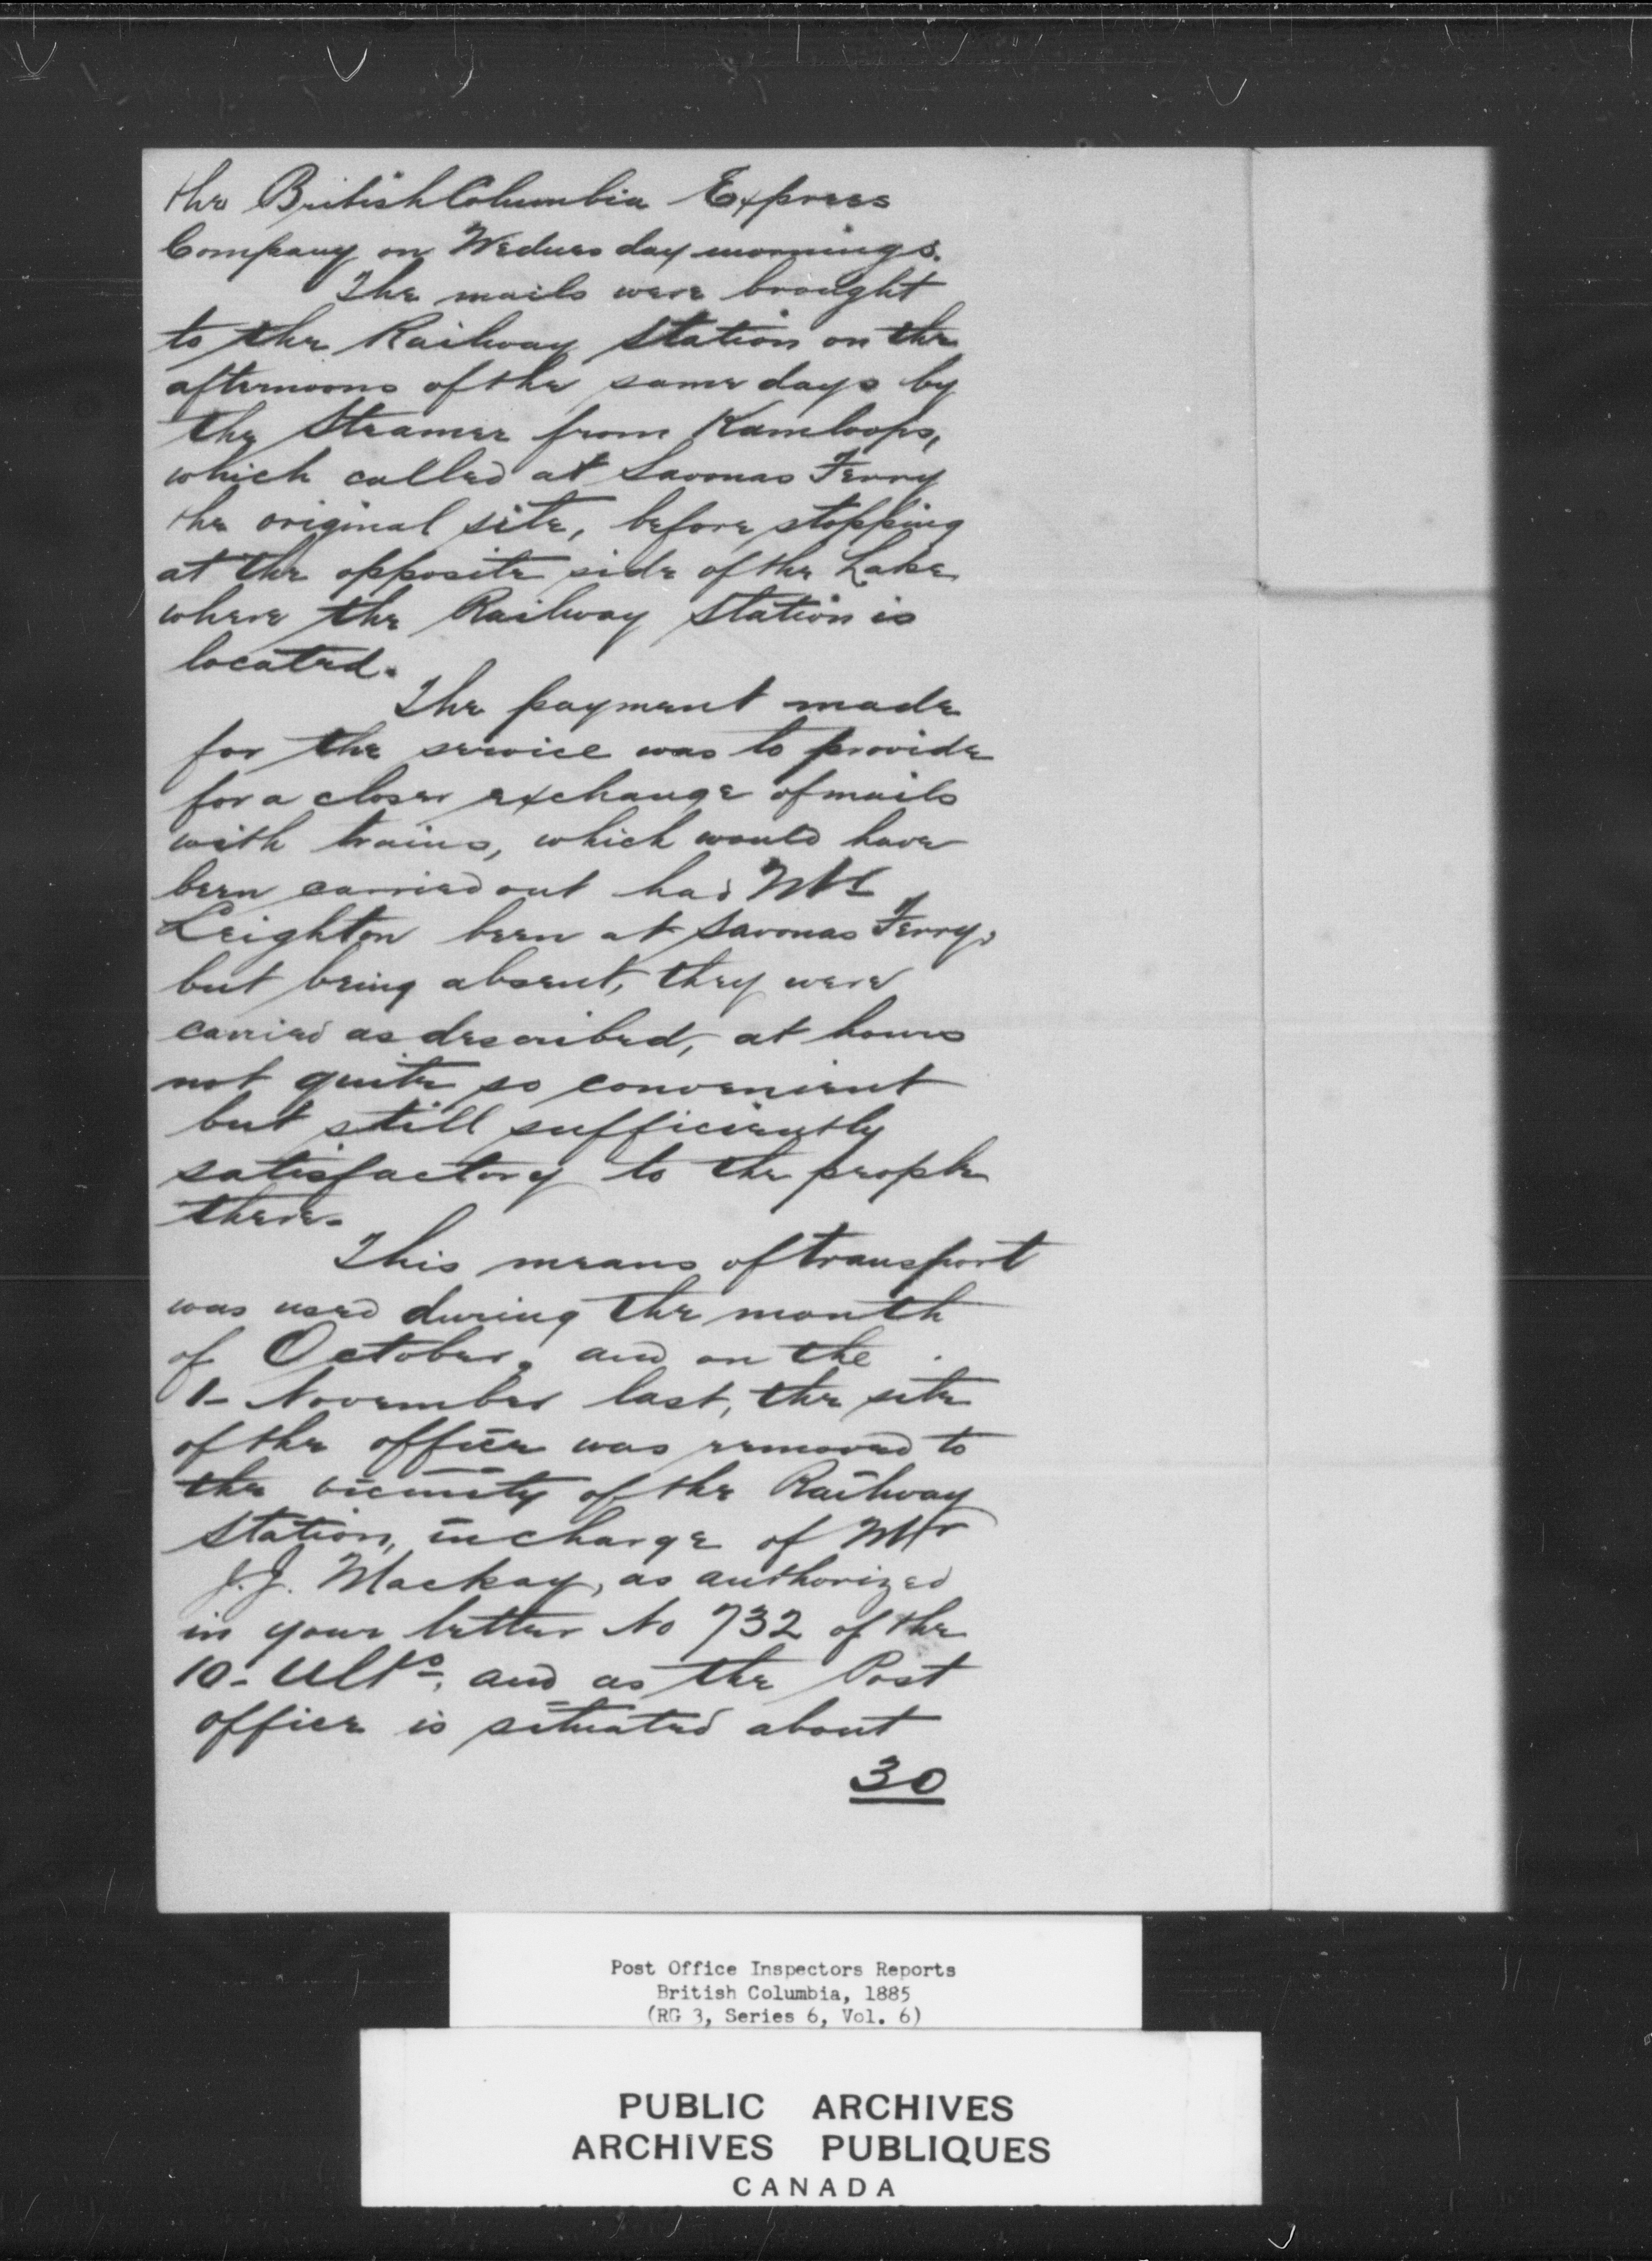 the British Columbia Express
Company on Wednesday mornings.
The mails were brought
to the Railway Station on the
afternoons of the same days by
the Steamer from Kamloops,
which called at Savonas Ferry
the original site, before stopping
at the opposite side of the Lake
where the Railway Station is
located.
The payment made
for the service was to provide
for a closer exchange of mails
with trains, which would have
been carried out had Mr
Leighton been at Savonas Ferry,
but being absent, they were
carried as described, at hours
not quite so convenient
but still sufficiently
satisfactory to the people
there.
This means of transport
was used during the month
of October, and on the
1- November last, the site
of the office was removed to
the vicinity of the Railway
Station, in charge of Mr
J.J. Mackay, as authorized
in your letter No 732 of the
10- Ulto, and as the Post
office is situated about
30
Post Office Inspectors Reports
British Columbia, 1885
(RG 3, Series 6, Vol. 6)
PUBLIC ARCHIVES
ARCHIVES PUBLIQUES
CANADA